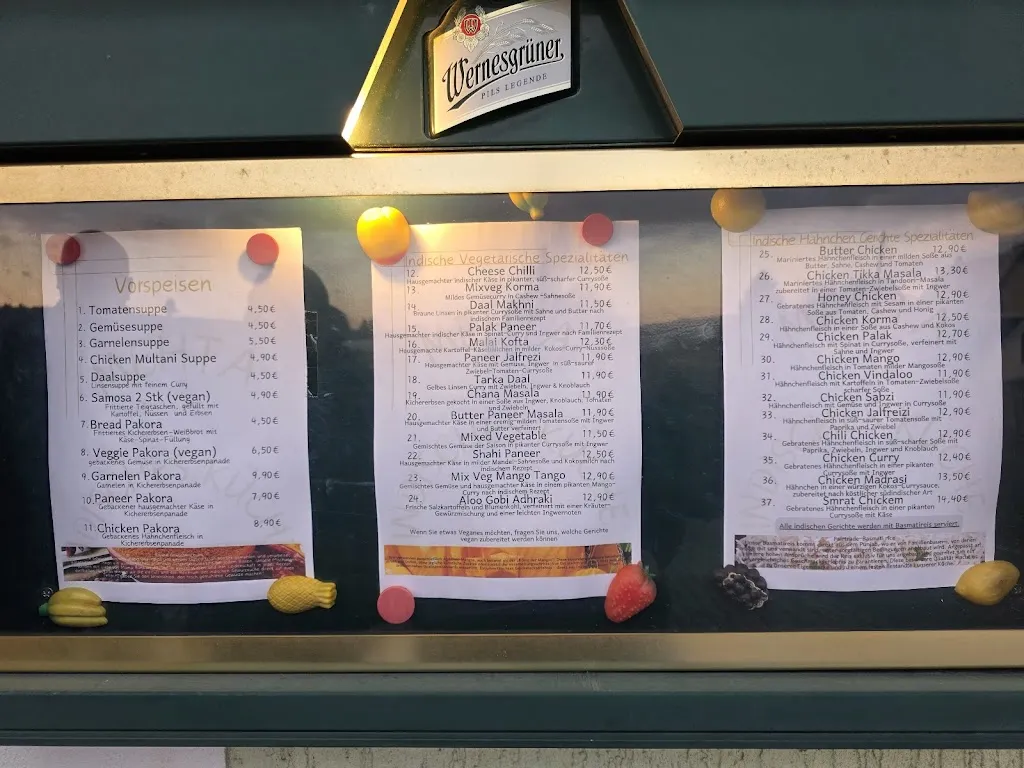 Wernesgrüner
PILS LEGENDE
Vorspeisen
1. Tomatensuppe 4,50€
2. Gemüsesuppe 4,50€
3. Garnelensuppe 5,50€
4. Chicken Multani Suppe 4,90€
5. Daalsuppe 4,50€
Linsensuppe mit feinem Curry
6. Samosa 2 Stk (vegan) 4,90€
Frittierte Teigtaschen, gefüllt mit
Kartoffel, Nüssen und Erbsen
7. Bread Pakora 4,50€
Frittiertes Kichererbsen-Weißbrot mit
Käse-Spinat-Füllung
8. Veggie Pakora (vegan) 6,50€
gebackenes Gemüse in Kichererbsenpanade
9. Garnelen Pakora 9,90€
Garnelen in Kichererbsenpanade
10. Paneer Pakora 7,90€
Gebackener hausgemachter Käse in
Kichererbsenpanade
11. Chicken Pakora 8,90€
Gebackenes Hähnchenfleisch in
Kichererbsenpanade
Indische Vegetarische Spezialitäten
12. Cheese Chilli 12,50€
Hausgemachter indischer Käse in pikanter, süß-scharfer Currysoße
13. Mixveg Korma 11,90€
Mildes Gemüsecurry in Cashew-Sahnesoße
14. Daal Makhni 11,50€
Braune Linsen in pikanter Currysoße mit Sahne und Butter nach
indischem Familienrezept
15. Palak Paneer 11,70€
Hausgemachter indischer Käse in Spinat-Curry und Ingwer nach Familienrezept
16. Malai Kofta 12,30€
Hausgemachte Kartoffel-Käsebällchen in milder Kokos-Curry-Nusssoße
17. Paneer Jalfrezi 11,90€
Hausgemachter Käse mit Gemüse, Ingwer in süß-sauer
Zwiebel-Tomaten-Currysoße
18. Tarka Daal 11,90€
Gelbes Linsen Curry mit Zwiebeln, Ingwer & Knoblauch
19. Chana Masala 11,90€
Kichererbsen gekocht in einer Soße aus Ingwer, Knoblauch, Tomaten
und Zwiebeln
20. Butter Paneer Masala 11,90€
Hausgemachter Käse in einer cremig-milden Tomatensoße mit Ingwer
und Butter verfeinert
21. Mixed Vegetable 11,50€
Gemischtes Gemüse der Saison in pikanter Currysoße mit Ingwer
22. Shahi Paneer 12,50€
Hausgemachter Käse in milder Mandel-Sahnesoße und Kokosmilch nach
indischem Rezept
23. Mix Veg Mango Tango 12,90€
Gemischtes Gemüse und hausgemachter Käse in einem pikanten Mango-
Curry nach indischem Rezept
24. Aloo Gobi Adhraki 12,90€
Frische Salzkartoffeln und Blumenkohl, verfeinert mit einer Kräuter-
Gewürzmischung und einer leichten Ingwernoten
Wenn Sie etwas Veganes möchten, fragen Sie uns, welche Gerichte
vegan zubereitet werden können
Indische Hähnchen Gerichte Spezialitäten
25. Butter Chicken 12,90€
Mariniertes Hähnchenfleisch in einer milden Soße aus
Butter, Sahne, Cashew und Tomaten
26. Chicken Tikka Masala 13,30€
Mariniertes Hähnchenfleisch in Tandoori-Masala
zubereitet in einer Tomaten-Zwiebelsoße mit Ingwer
27. Honey Chicken 12,90€
Gebratenes Hähnchenfleisch mit Sesam in einer pikanten
Soße aus Tomaten, Cashew und Honig
28. Chicken Korma 12,50€
Hähnchenfleisch in einer Soße aus Cashew und Kokos
29. Chicken Palak 12,70€
Hähnchenfleisch mit Spinat in Currysoße, verfeinert mit
Sahne und Ingwer
30. Chicken Mango 12,90€
Hähnchenfleisch in Tomaten milder Mangosoße
31. Chicken Vindaloo 11,90€
Hähnchenfleisch mit Kartoffeln in Tomaten-Zwiebelsoße
scharfer Soße
32. Chicken Sabzi 11,90€
Hähnchenfleisch mit Gemüse und Ingwer in Currysoße
33. Chicken Jalfreizi 12,90€
Hähnchenfleisch in süß-saurer Tomatensoße mit
Paprika und Zwiebel
34. Chili Chicken 12,90€
Gebratenes Hähnchenfleisch in süß-scharfer Soße mit
Paprika, Zwiebeln, Ingwer und Knoblauch
35. Chicken Curry 12,40€
Gebratenes Hähnchenfleisch in einer pikanten
Currysoße mit Ingwer
36. Chicken Madrasi 13,50€
Hähnchen in einer würzigen Kokos-Currysauce,
zubereitet nach köstlicher südindischer Art
37. Smrat Chickem 14,40€
Gebratenes Hähnchenfleisch in einer pikanten
Currysoße mit Käse
Alle indischen Gerichte werden mit Basmatireis serviert.